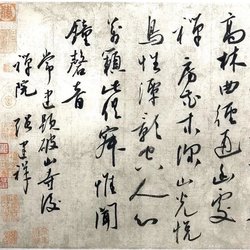 高林曲徑通幽處
禪房花木深山光悅
鳥性潭影空人心
萬籟此俱寂惟聞
鐘磬音
常建題破山寺後
禪院